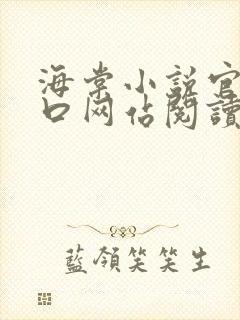 海棠小说官
口网佔閱讀
藍領笑笑生